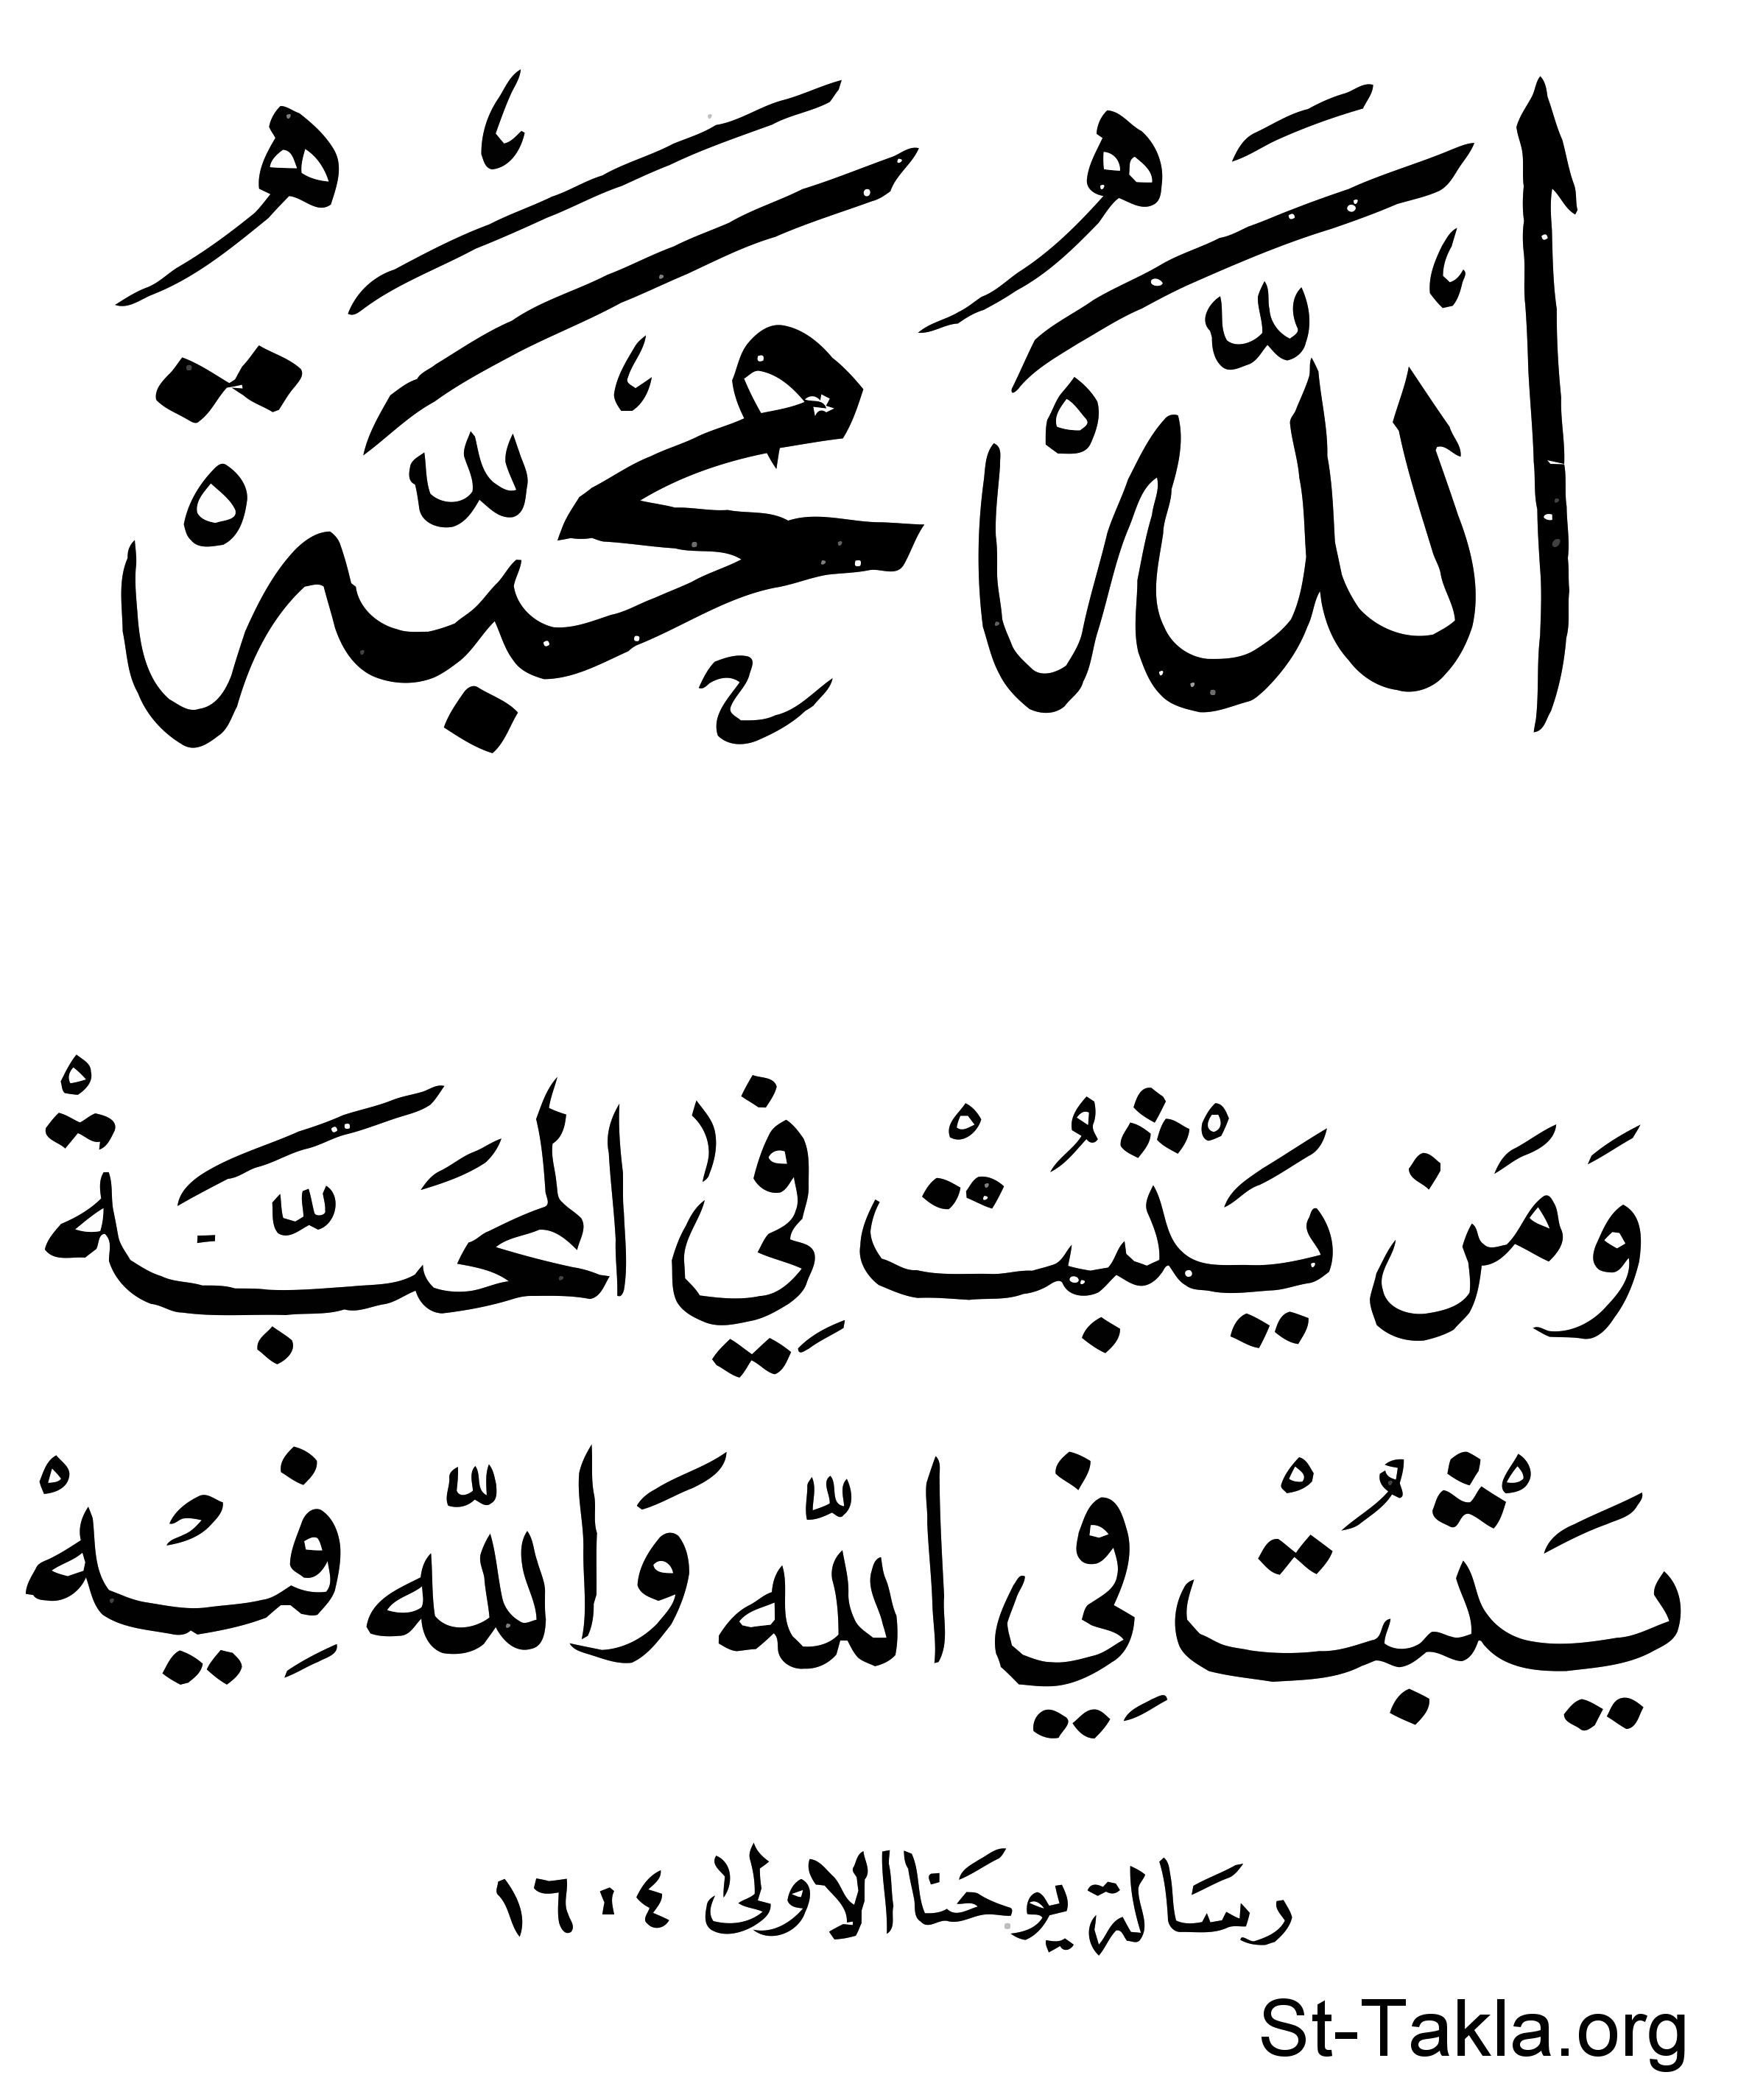 اللّٰهُ مَحَبَّةٌ
وَمَنْ يَثْبُتْ فِي الْمَحَبَّةْ
يَثْبُتْ فِي اللّٰه وَاللّٰه فِيهْ
رسالة يوحنا الاولى ٤ : ١٦
St-Takla.org